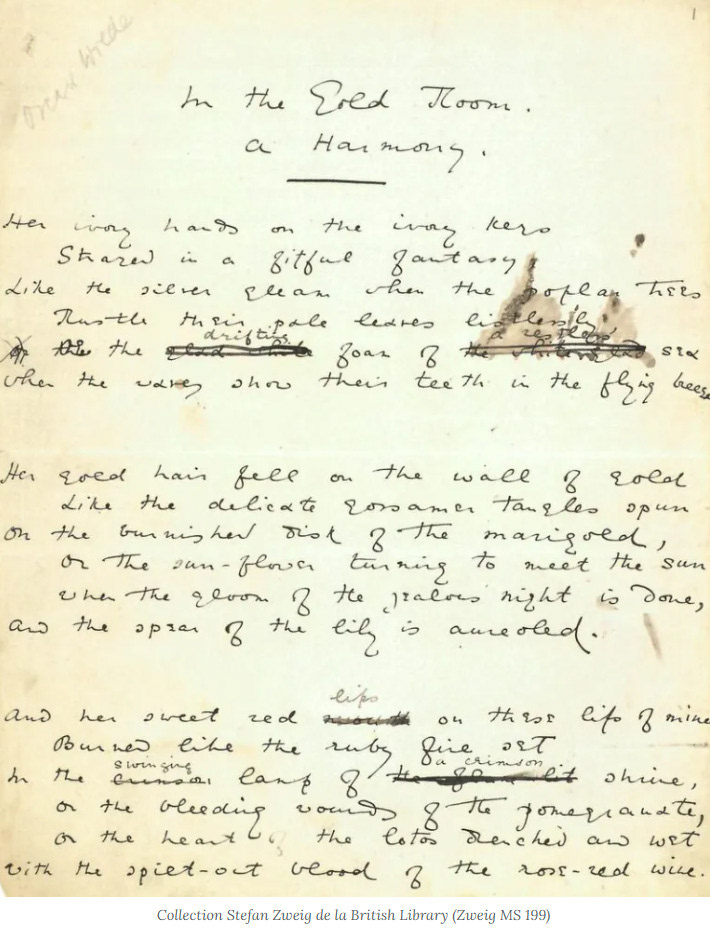 1
Oscar Wilde
In the Gold Room.
A Harmony.
Her ivory hands on the ivory keys
Strayed in a fitful fantasy,
Like the silver gleam when the poplar trees
Rustle their pale leaves listlessly,
drifting a restless
Or the foam of sea
When the waves show their teeth in the flying breeze
Her gold hair fell on the wall of gold
Like the delicate gossamer tangles spun
On the burnished disk of the marigold,
Or the sun-flower turning to meet the sun
When the gloom of the jealous night is done,
And the spear of the lily is aureoled.
lips
And her sweet red mouth on these lips of mine
Burned like the ruby fire set
swinging a crimson
In the crimson lamp of shrine,
Or the bleeding wounds of the pomegranate,
Or the heart of the lotos drenched and wet
With the spilt-out blood of the rose-red wine.
Collection Stefan Zweig de la British Library (Zweig MS 199)